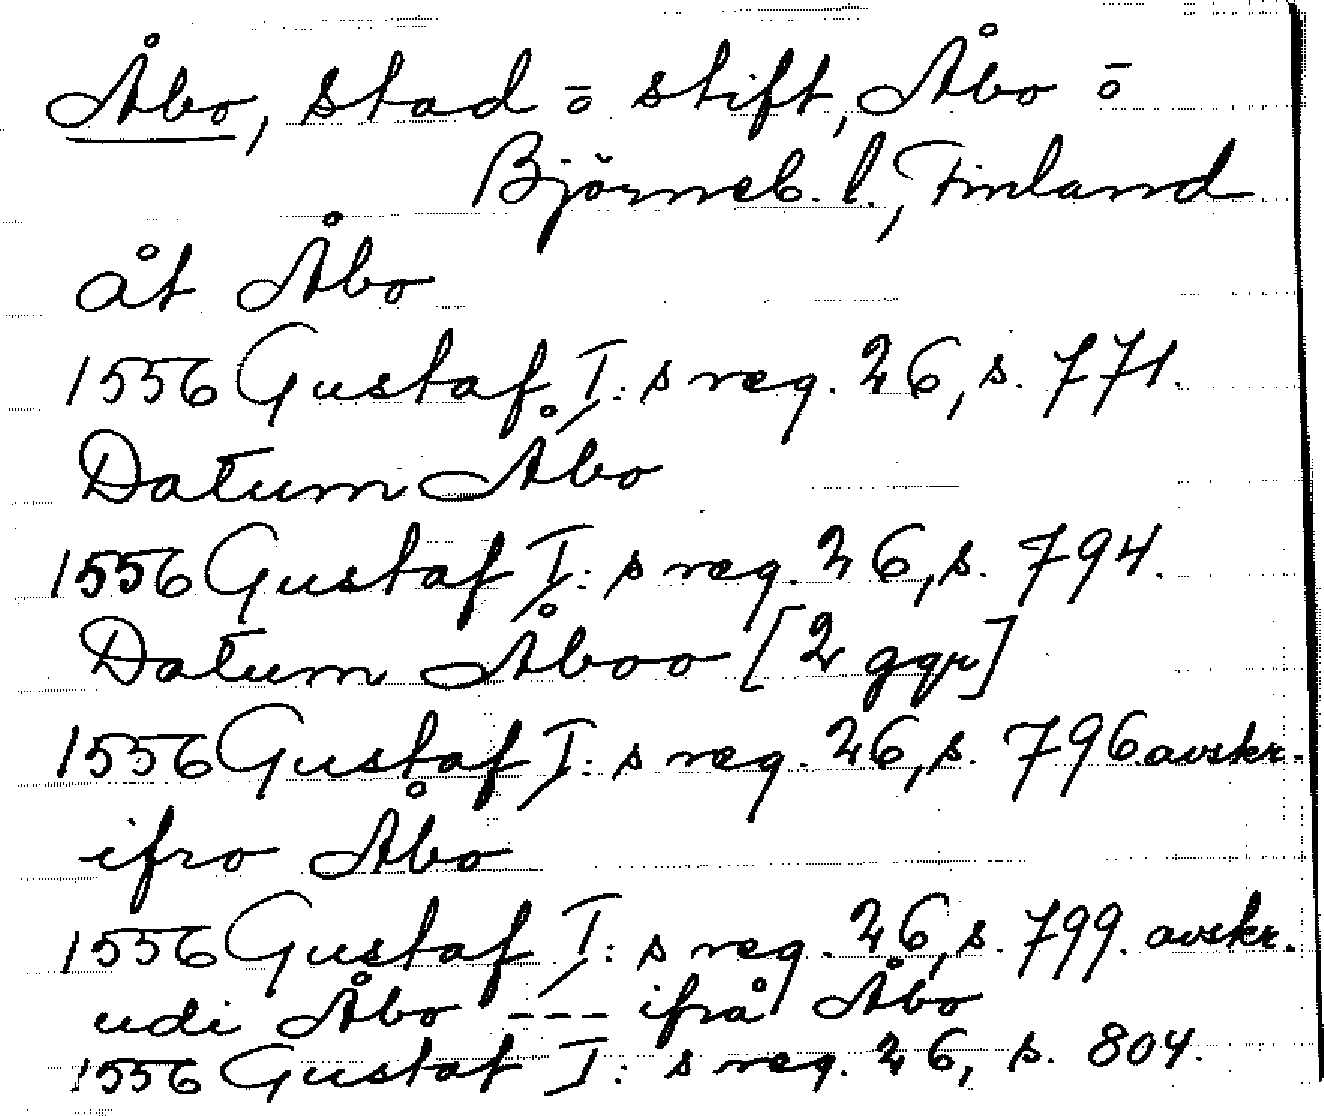 Åbo, stad o stift, Åbo o
Björneb. l., Finland
åt Åbo
1556 Gustaf I: s reg. 26, s. 771.
Datum Åbo
1556 Gustaf I: s reg. 26, s. 794.
Datum Åboo [2 ggr]
1556 Gustaf I: s reg. 26, s. 796 avskr.
ifro Åbo
1556 Gustaf I: s reg. 26, s. 799. avskr.
udi Åbo --- ifrå Åbo
1556 Gustaf I: s reg. 26, s. 804.